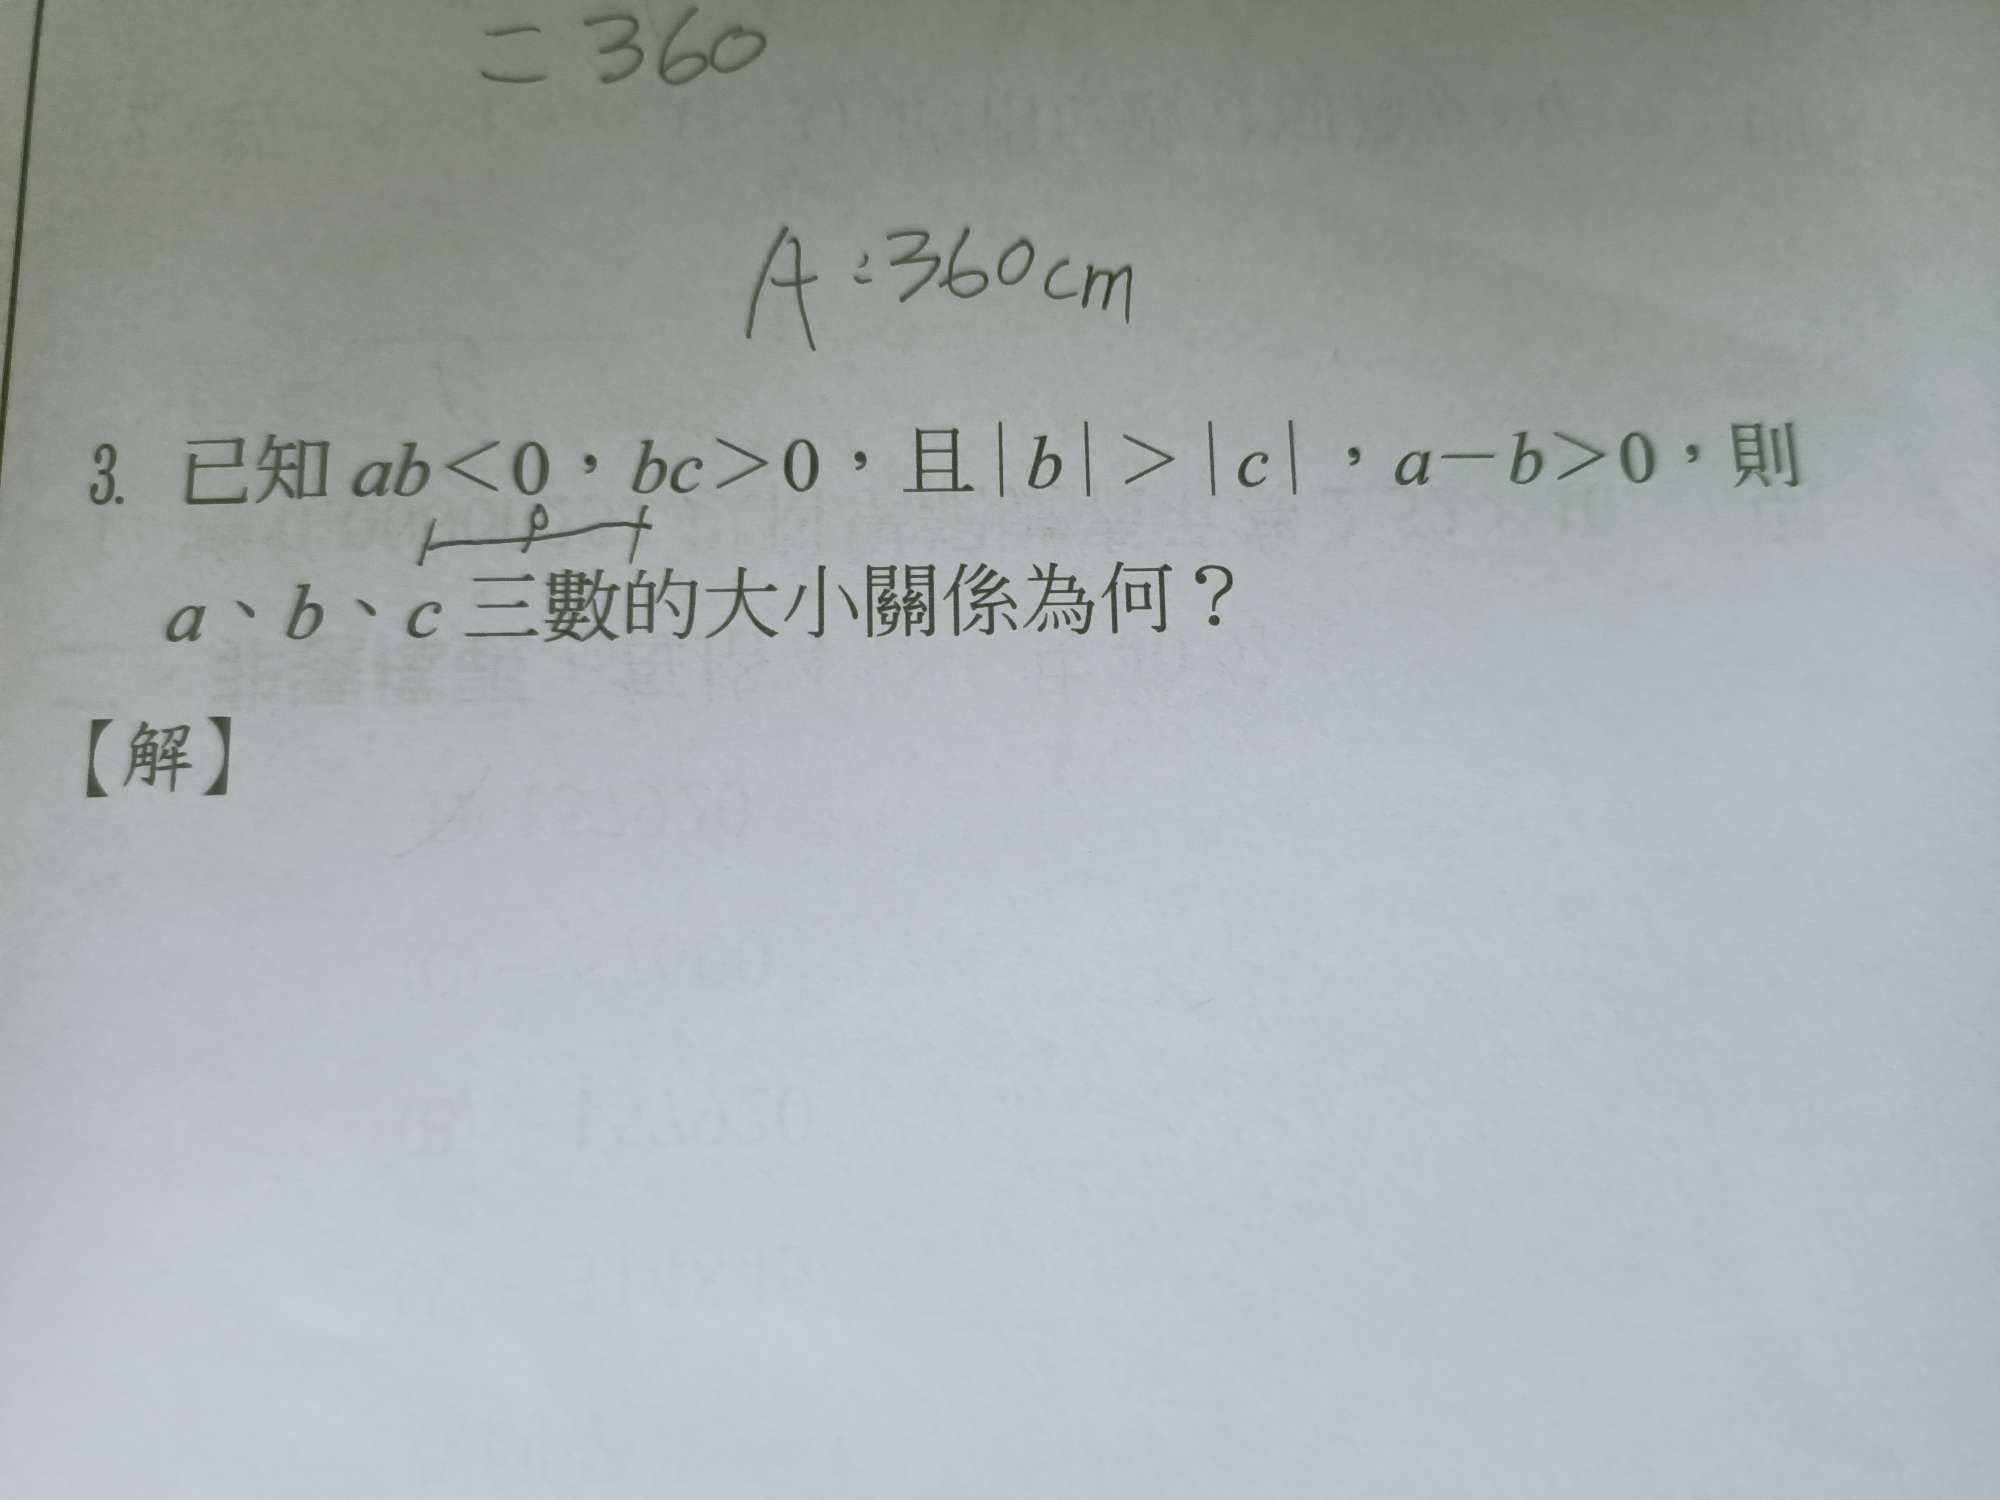 = 360
A：360cm
3. 已知 ab＜0，bc＞0，且|b|＞|c|，a－b＞0，則
0
a、b、c 三數的大小關係為何？
【解】